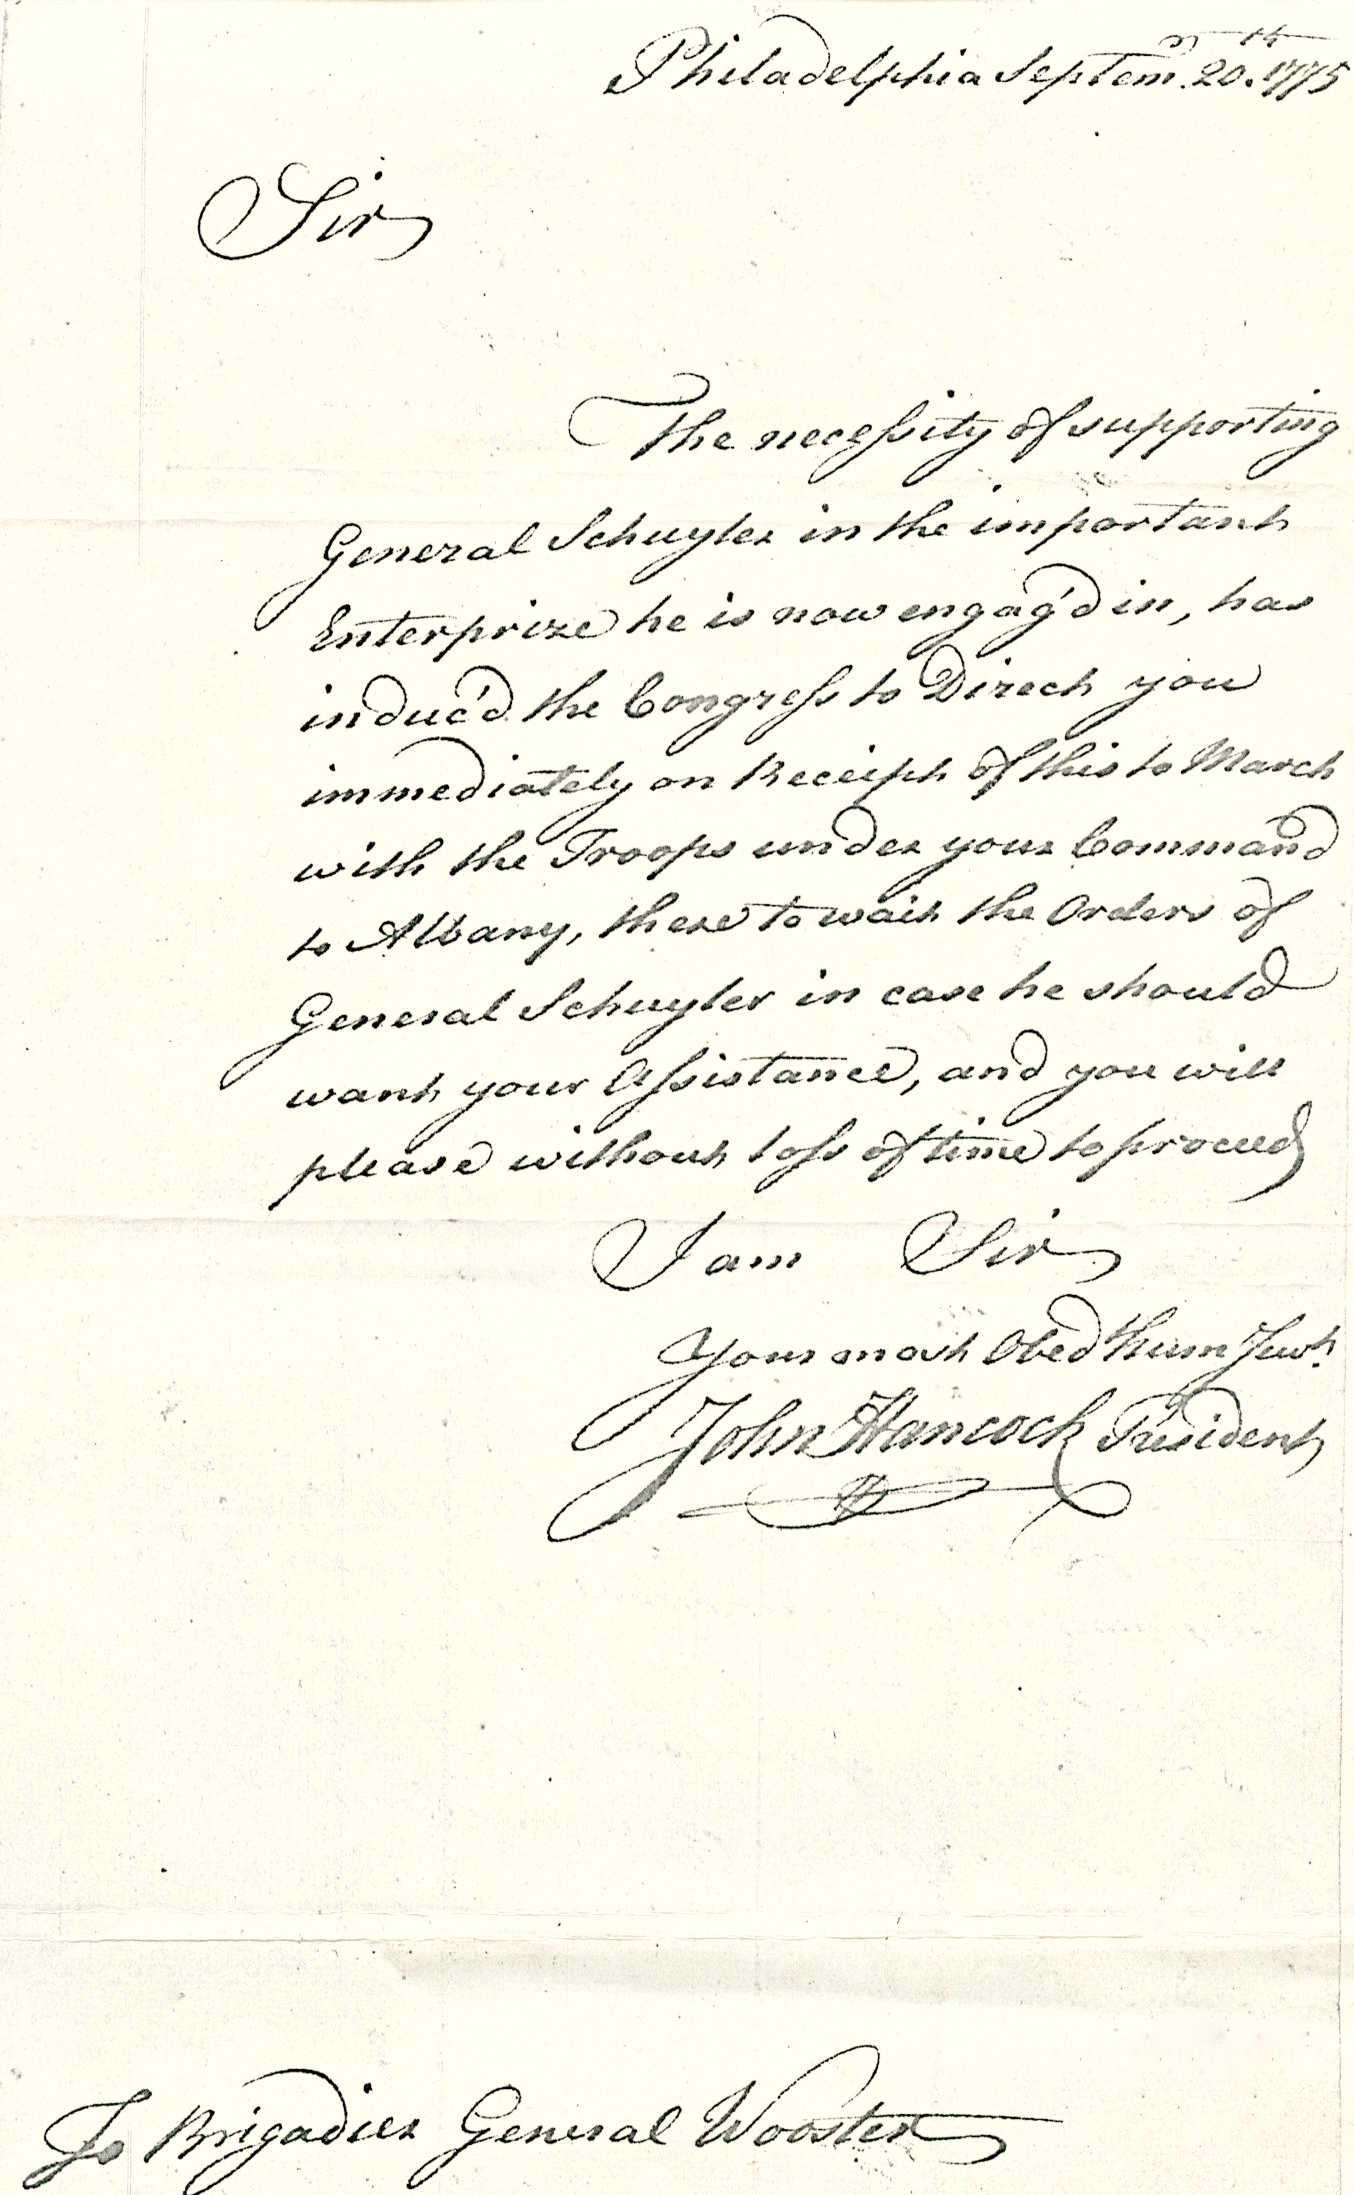 Philadelphia Septemr. 20th. 1775
Sir
The necessity of supporting
General Schuyler in the important
Enterprize he is now engag'd in, has
induc'd the Congress to Direct you
immediately on Receipt of this to March
with the Troops under your Command
to Albany, there to wait the Orders of
General Schuyler in case he should
want your Assistance, and you will
please without loss of time to proceed
I am Sir
Your most Obed Hum Servt.
John Hancock President
To Brigadier General Wooster